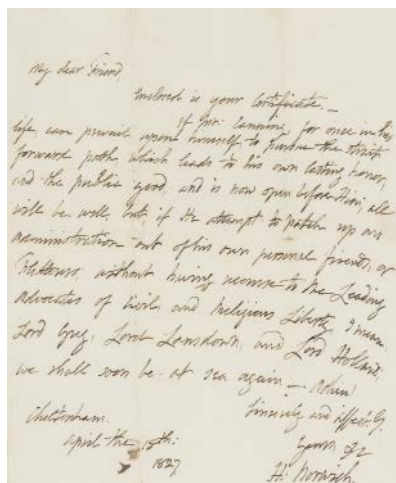 My dear Friend,
Enclosed is your Certificate. —
If Mr. Canning, for once in his
life, can prevail upon himself to pursue the strait
forward path, which leads to his own lasting honor,
and the public good, and is now open before Him, all
will be well, but, if He attempt to patch up an
administration out of his own personal friends, or
Flatterers, without having recourse to the Leading
advocates of Civil and Religious Liberty, I mean
Lord Grey, Lord Lansdown, and Lord Holland,
we shall soon be at sea again —
Sincerely and affect:ly
Cheltenham.
Yours &c
April the
1827
H: Norwich